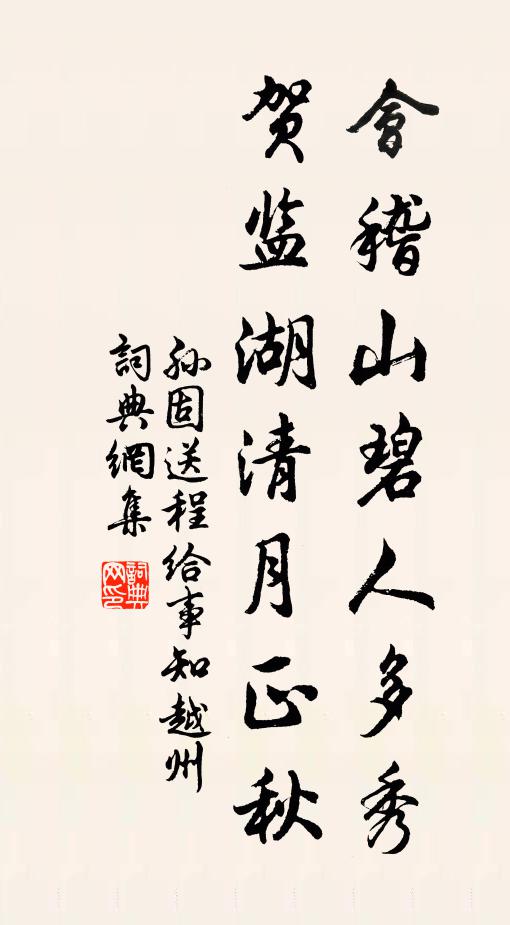 會稽山碧人多秀
贺监湖清月正秋
孙固送程给事知越州
詞典網集
詞典网印